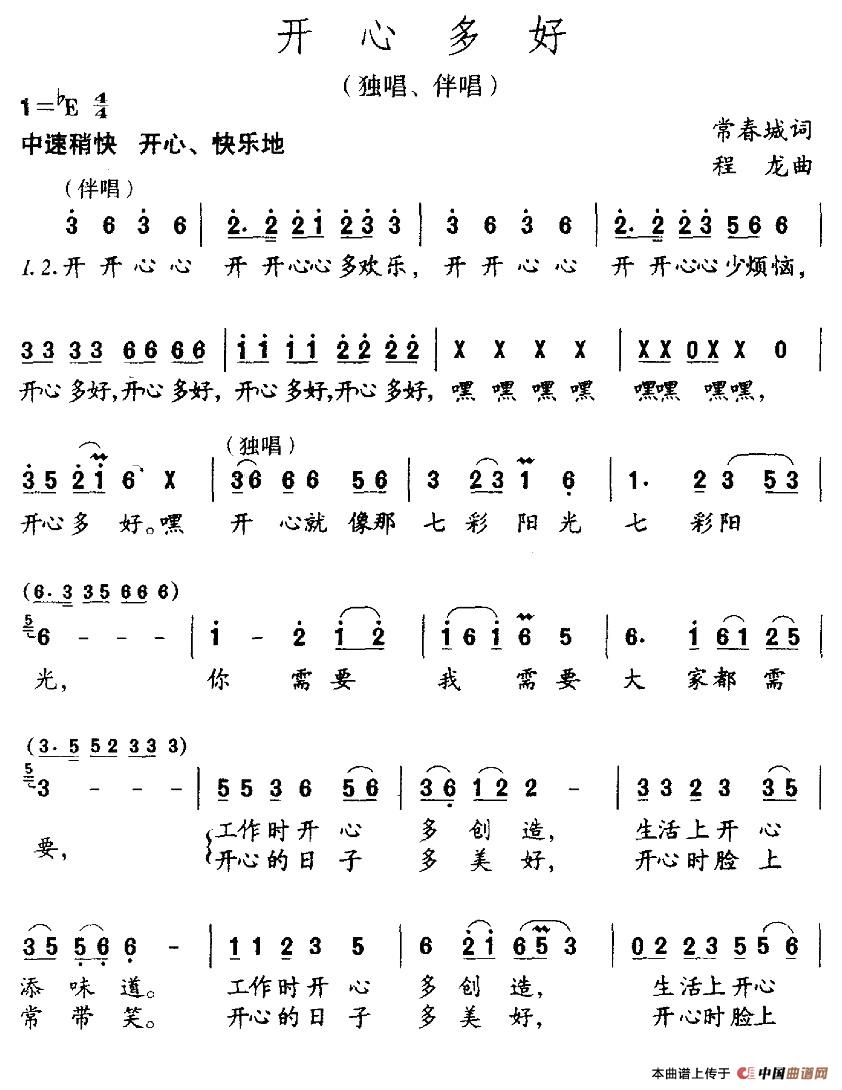 开心多好
（独唱、伴唱）
1=♭E 4/4
中速稍快 开心、快乐地
常春城词
程龙曲
（伴唱）
3 6 3 6 | 2. 2 2 1 2 3 3 | 3 6 3 6 | 2. 2 2 3 5 6 6 |
1.2.开 开 心 心 开 开心心多欢乐，开 开 心 心 开 开心心少烦恼，
33 33 66 66 | 11 11 22 22 | X X X X | XX 0X X 0 |
开心多好，开心多好，开心多好，开心多好，嘿 嘿 嘿 嘿 嘿嘿 嘿嘿，
（独唱）
35 21 6 X | 36 66 56 | 3 23 1 6 | 1. 2 3 5 3 |
开心多 好。嘿 开 心就像那 七 彩 阳 光 七 彩阳
（6. 3 35 66 6）
5 6 - - - | 1 - 2 1 2 | 1 6 1 6 5 | 6. 1 61 25 |
光， 你 需要 我 需要 大 家都需
（3. 5 52 33 3）
5 3 - - - | 55 36 56 | 36 12 2 - | 33 23 35 |
要，
工作时开心 多 创造， 生活上开心
开心的日子 多 美好， 开心时脸上
35 56 6 - | 11 23 5 | 6 21 65 3 | 02 23 55 6 |
添 味 道。 工作时开心 多 创造， 生活上开心
常 带 笑。 开心的日子 多 美好， 开心时脸上
本曲谱上传于 中国曲谱网